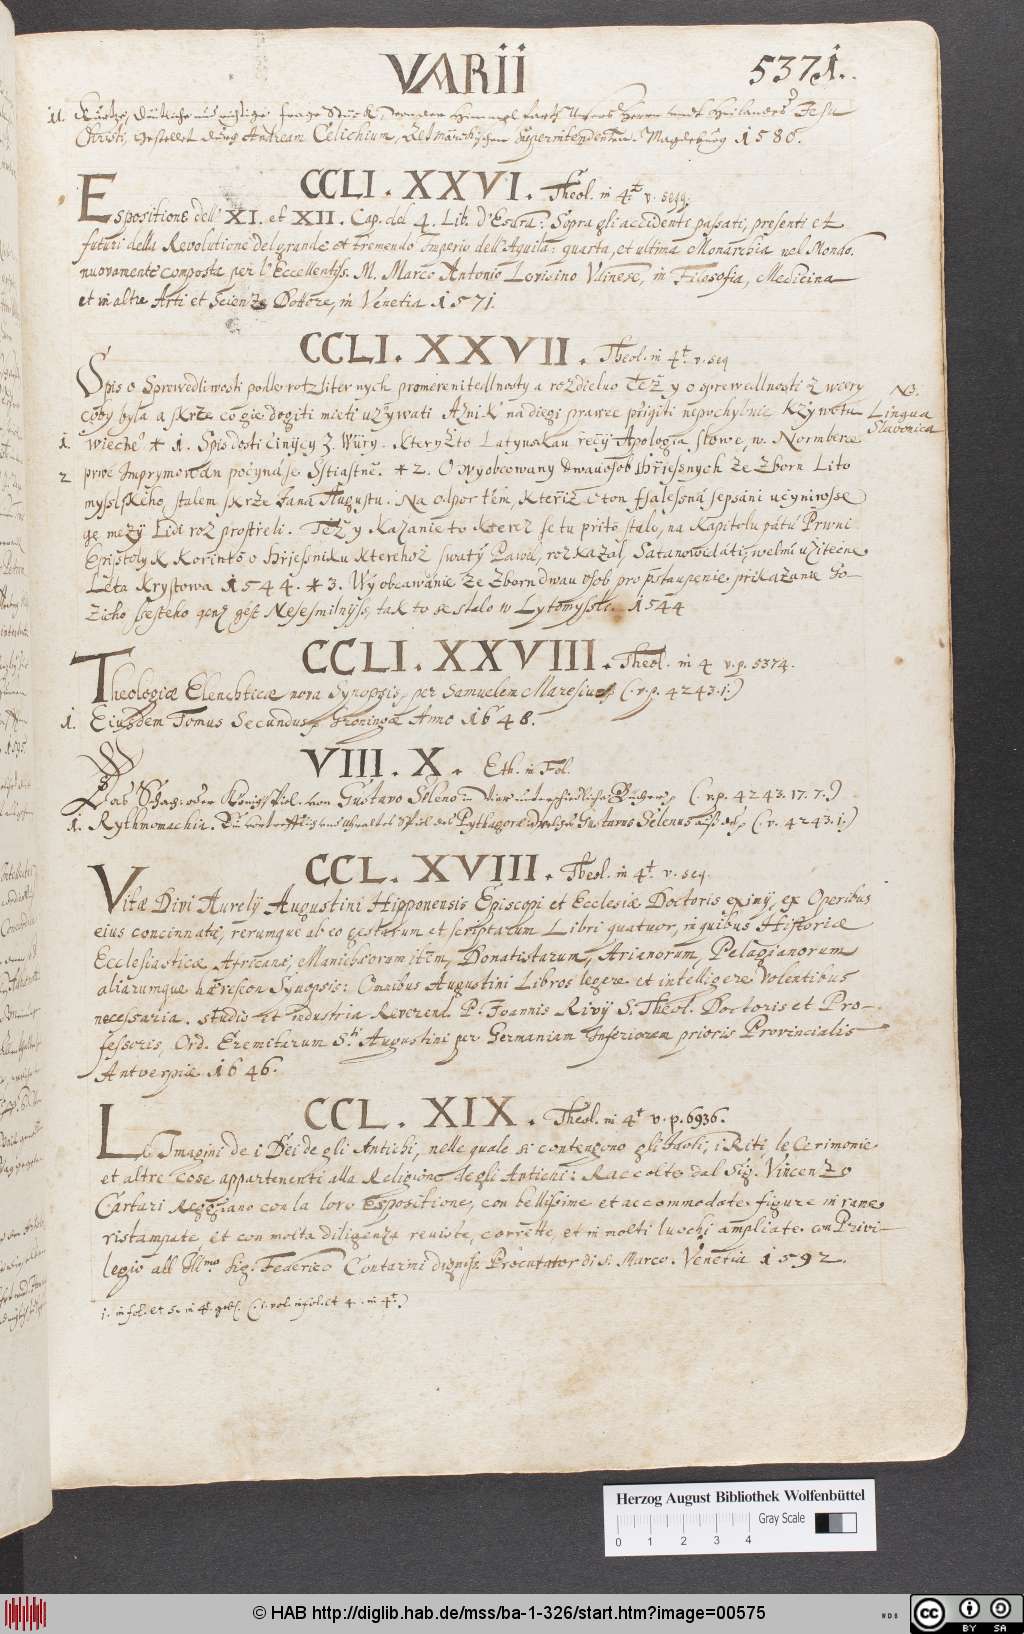 VARII
5371.
11. Kurtze, Christi, gestellet durch Andream Celichium, Superintendenten. Magdeburg 1580.
CCLI. XXVI. Theol. in 4.t v. seqq.
Espositione dell' XI. et XII. Cap. del 4. Lib. d'Esdra: Sopra gli accidenti passati, presenti et
futuri della Revolutione del grande et tremendo Imperio dell'Aquila: quarta, et ultima Monarchia nel Mondo.
nuovamente composta per l'Eccellentiss. M. Marco Antonio Udinese, in Filosofia, Medicina
et in altre Arti et Scienze Dottore, in Venetia 1571.
CCLI. XXVII. Theol. in 4.t v. seq
Spis o Sprewedliwosti podle promerenitedlnosty a rozdieluo Též y o sprewedlnosti z wiery
coby byla a skrze co gie dogiti mieti uzywati Aznik na diegi prawee přigiti nepochybnie k zywotu
NB.
Lingua
Slavonica
1 wiečné * 1. Spis dosti činijcy z Wiiry. kteryžto Latynskau řečij Apologia slowe, w. Normberce
2 prwe Imprymowan počyna se Sstiastnie. * 2. O wyobcowany dwauosob hřiessnych ze zboru Lito
mysslského, stalem skrze Jana Augustu. Na odpor tem, kteřiž o tom sepsani učyniwsse
ge mezy Lidi rozprostřeli. Též y Kazanie to kterez se tu přito stalo, na Kapitolu pátu Prwni
Epistoly k Korintō o hrjessniku kterehoz swatý Pawel, rozkazal, Satanowi dáti, welmi užitečne
Léta Krystowa 1544. * 3. Wyobcowánie ze zboru dwau osob pro přstaupenie přikázanie Bo-
zieho ssesteho genz gest Nesesmilnijss, tak to se stalo w Lytomyssli. 1544
CCLI. XXVIII. Theol. in 4 v. p. 5374.
Theologiæ Elenchticæ, nova Synopsis, per Samuelem Maresium (v. p. 4243. 1.)
1. Eiusdem Tomus Secundus, Groningæ Anno 1648.
VIII. X. Eth. in Fol.
Das Schach: oder König Spiel. von Gustavo Seleno in vier unterschiedliche Bücher (v. p. 4243. 17. 7.)
1. Rythmomachia. Ein vortrefflich und uhraltes Spiel des Pythagoræ welches Gustavus Selenus (v. 4243. 1.)
CCL. XVIII. Theol. in 4.t v. seq.
Vitæ Divi Aurelij Augustini Hipponensis Episcopi et Ecclesiæ Doctoris eximij, ex Operibus
eius concinnatæ, rerumque ab eo gestarum et scriptarum Libri quatuor, in quibus Historicæ
Ecclesiasticæ Africanæ, Manichæorum item, Donatistarum, Arianorum, Pelagianorum
aliarumque hæreseon Synopsis: Omnibus Augustini Libros legere et intelligere Volentibus
necessaria. studio et industria Reverend. P. Joannis Rivij S. Theol. Doctoris et Pro-
fessoris, Ord. Eremitarum S.ti Augustini per Germaniam Inferiorem prioris Provincialis
Antverpiæ 1646.
CCL. XIX. Theol. in 4.t v. p. 6936.
Le Imagini de i Dei de gli Antichi, nelle quale si contengono gli Idoli, i Riti, le Cerimonie
et altre cose appartenenti alla Religione de gli Antichi: Raccolte dal Sig. Vincenzo
Cartari Reggiano con la loro Espositione, con bellissime et accommodate figure in rame
ristampate et con molta diligenza reviste, corrette, et in molti luochi ampliate con Privi-
legio all Ill.mo Sig. Federico Contarini digniss. Procutator di S. Marco. Venetia 1592.
1. in fol. et 5. in 4.t (1. vol. in fol. et 4. in 4.t)
Herzog August Bibliothek Wolfenbüttel
Gray Scale
0 1 2 3 4
© HAB http://diglib.hab.de/mss/ba-1-326/start.htm?image=00575
WDB
cc
BY SA